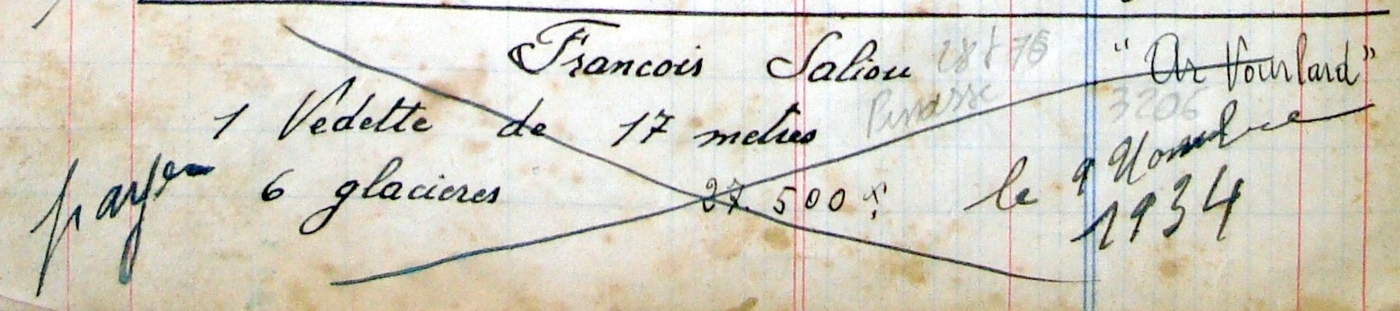 Francois Saliou "Ar Vourlard"
Pinasse 3206
1 Vedette de 17 metres
payer 6 glacieres 27 500 f. le 9 Novembre
1934